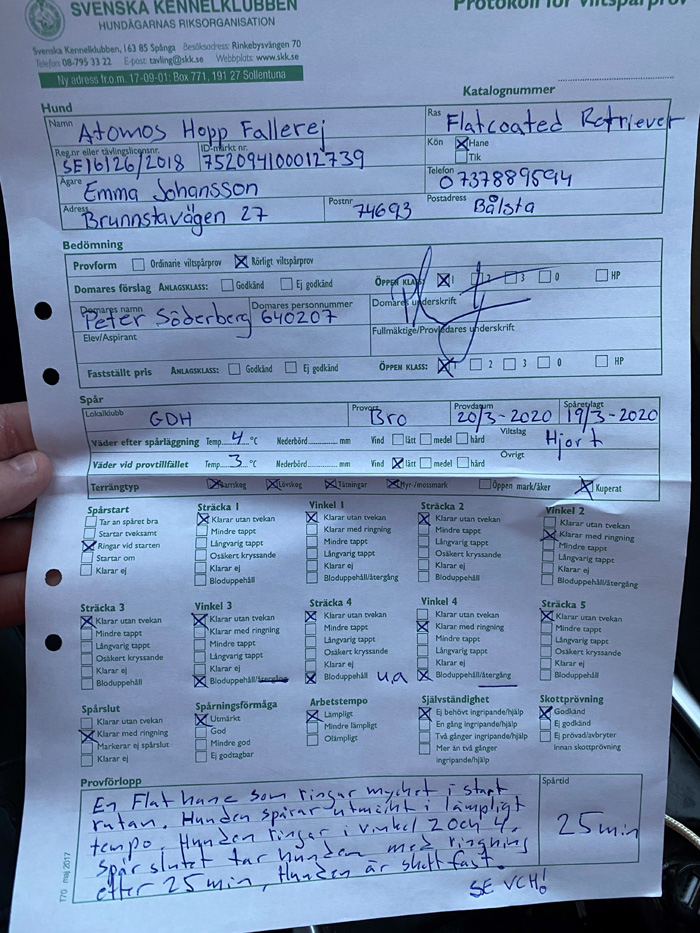 SVENSKA KENNELKLUBBEN
HUNDÄGARNAS RIKSORGANISATION
Svenska Kennelklubben, 163 85 Spånga Besöksadress: Rinkebysvängen 70
Telefon 08-795 33 22 E-post: tavling@skk.se Webbplats: www.skk.se
Ny adress fr.o.m. 17-09-01: Box 771, 191 27 Sollentuna
Protokoll för viltspårprov
Katalognummer
Hund
Namn Atomos Hopp Fallerej
Ras Flatcoated Retriever
Reg.nr eller tävlingslicensnr. SE16126/2018
ID-märkt nr. 752094100012739
Kön Hane
Tik
Ägare Emma Johansson
Telefon 0737889594
Adress Brunnstavägen 27
Postnr 74693
Postadress Bålsta
Bedömning
Provform Ordinarie viltspårprov Rörligt viltspårprov
Domares förslag ANLAGSKLASS: Godkänd Ej godkänd ÖPPEN KLASS: 1 2 3 0 HP
Domares namn Peter Söderberg
Domares personnummer 640207
Domares underskrift
Elev/Aspirant
Fullmäktige/Provledares underskrift
Fastställt pris ANLAGSKLASS: Godkänd Ej godkänd ÖPPEN KLASS: 1 2 3 0 HP
Spår
Lokalklubb GDH
Provort Bro
Provdatum 20/3-2020
Spåret lagt 19/3-2020
Väder efter spårläggning Temp. 4 °C Nederbörd mm Vind lätt medel hård
Viltslag Hjort
Väder vid provtillfället Temp. 3 °C Nederbörd mm Vind lätt medel hård
Övrigt
Terrängtyp Barrskog Lövskog Tätningar Myr-/mossmark Öppen mark/åker Kuperat
Spårstart
Tar an spåret bra
Startar tveksamt
Ringar vid starten
Startar om
Klarar ej
Sträcka 1
Klarar utan tvekan
Mindre tappt
Långvarig tappt
Osäkert kryssande
Klarar ej
Bloduppehåll
Vinkel 1
Klarar utan tvekan
Klarar med ringning
Mindre tappt
Långvarig tappt
Klarar ej
Bloduppehåll/återgång
Sträcka 2
Klarar utan tvekan
Mindre tappt
Långvarig tappt
Osäkert kryssande
Klarar ej
Bloduppehåll
Vinkel 2
Klarar utan tvekan
Klarar med ringning
Mindre tappt
Långvarig tappt
Klarar ej
Bloduppehåll/återgång
Sträcka 3
Klarar utan tvekan
Mindre tappt
Långvarig tappt
Osäkert kryssande
Klarar ej
Bloduppehåll
Vinkel 3
Klarar utan tvekan
Klarar med ringning
Mindre tappt
Långvarig tappt
Klarar ej
Bloduppehåll/återgång
Sträcka 4
Klarar utan tvekan
Mindre tappt
Långvarig tappt
Osäkert kryssande
Klarar ej
Bloduppehåll ua
Vinkel 4
Klarar utan tvekan
Klarar med ringning
Mindre tappt
Långvarig tappt
Klarar ej
Bloduppehåll/återgång
Sträcka 5
Klarar utan tvekan
Mindre tappt
Långvarig tappt
Osäkert kryssande
Klarar ej
Bloduppehåll
Spårslut
Klarar utan tvekan
Klarar med ringning
Markerar ej spårslut
Klarar ej
Spårningsförmåga
Utmärkt
God
Mindre god
Ej godtagbar
Arbetstempo
Lämpligt
Mindre lämpligt
Olämpligt
Självständighet
Ej behövt ingripande/hjälp
En gång ingripande/hjälp
Två gånger ingripande/hjälp
Mer än två gånger
ingripande/hjälp
Skottprövning
Godkänd
Ej godkänd
Ej prövad/avbryter
innan skottprövning
Provförlopp
En Flat hane som ringar mycket i start
rutan. Hunden spårar utmärkt i lämpligt
tempo. Hunden ringar i vinkel 2 och 4.
Spår slutet tar hunden med ringning
efter 25 min, Hunden är skott fast.
SE VCH!
Spårtid
25 min
T70 maj 2017